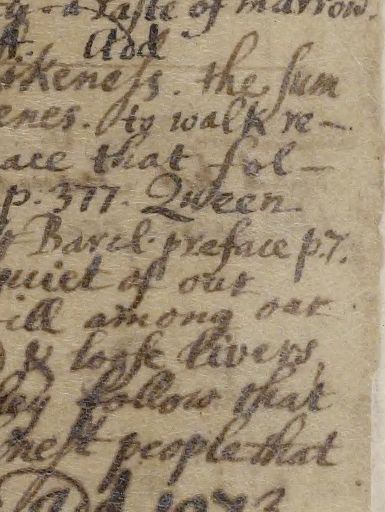 a taste of marrow.
Add
likeness. the sum
enes. to walk re-
ace that fol-
p. 377. Qween
Baril. preface p. 7.
quiet of our
ill among our
& loose livers,
hey follow that
nest people that